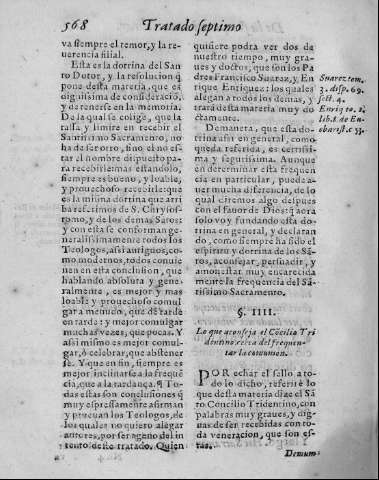 568
Tratado septimo
va siempre el temor, y la re
uerencia filial.
Esta es la dotrina del San
to Dotor, y la resolucion q̃
pone desta materia, que es
dignissima de consideracion,
y de tenerse en la memoria.
De la qual se colige, que la
tassa, y limite en recebir el
Santissimo Sacramento, no
ha de ser otro, sino el no es-
tar el hombre dispuesto pa-
ra recebirle: mas estandolo,
siempre es bueno, y loable,
y prouechoso recebirle: que
es la misma dotrina que arri
ba referimos de S. Chrysos-
tomo, y de los demas Sãtos:
y con esta se conforman ge-
neralissimamente todos los
Teologos, assi antiguos, co-
mo modernos, todos conuie
nen en esta conclusion, que
hablando absoluta y gene-
ralmente, es mejor y mas
loable y prouechoso comul
gar a menudo, que de tarde
en tarde: y mejor comulgar
muchas vezes, que pocas. Y
assi mismo es mejor comul-
gar, ò celebrar, que abstener
se. Y que en fin, siempre es
mejor inclinarse a la frequẽ
cia, que a la tardança. ¶ To
das estas son conclusiones q̃
muy espressamẽte afirman
y prueuan los Teologos, de
los quales no quiero alegar
autores, por ser ageno del in
tento deste tratado. Quien
quisiere podra ver dos de
nuestro tiempo, muy gra-
ues y doctos, que son los Pa
dres Francisco Suarez, y En
rique Enriquez: los quales
alegan a todos los demas, y
tratã desta materia muy do
ctamente.
De manera, que esta do-
trina assi en general, como
queda referida, es certissi-
ma y segurissima. Aunque
en determinar esta frequen
cia en particular, puede a-
uer mucha diferencia, de lo
qual diremos algo despues
con el fauor de Dios: q̃ aora
solo voy fundando esta do-
trina en general, y declaran
do, como siempre ha sido el
espiritu y dotrina de los Sã-
tos, aconsejar, persuadir, y
amonestar muy encarecida
mente la frequencia del Sã-
tissimo Sacramento.
§. IIII.
Lo que aconseja el Cõcilio Tri
dentino cerca del frequen-
tar la comunion.
POR echar el sello a to-
do lo dicho, referirè lo
que desta materia dize el Sã
to Concilio Tridentino, con
palabras muy graues, y dig-
nas de ser recebidas con to-
da veneracion, que son es-
tas.
Demum
Suarez tom.
3. disp. 69.
sect. 4.
Enriq to. 1.
lib. 8. de Eu-
charist. c. 53.